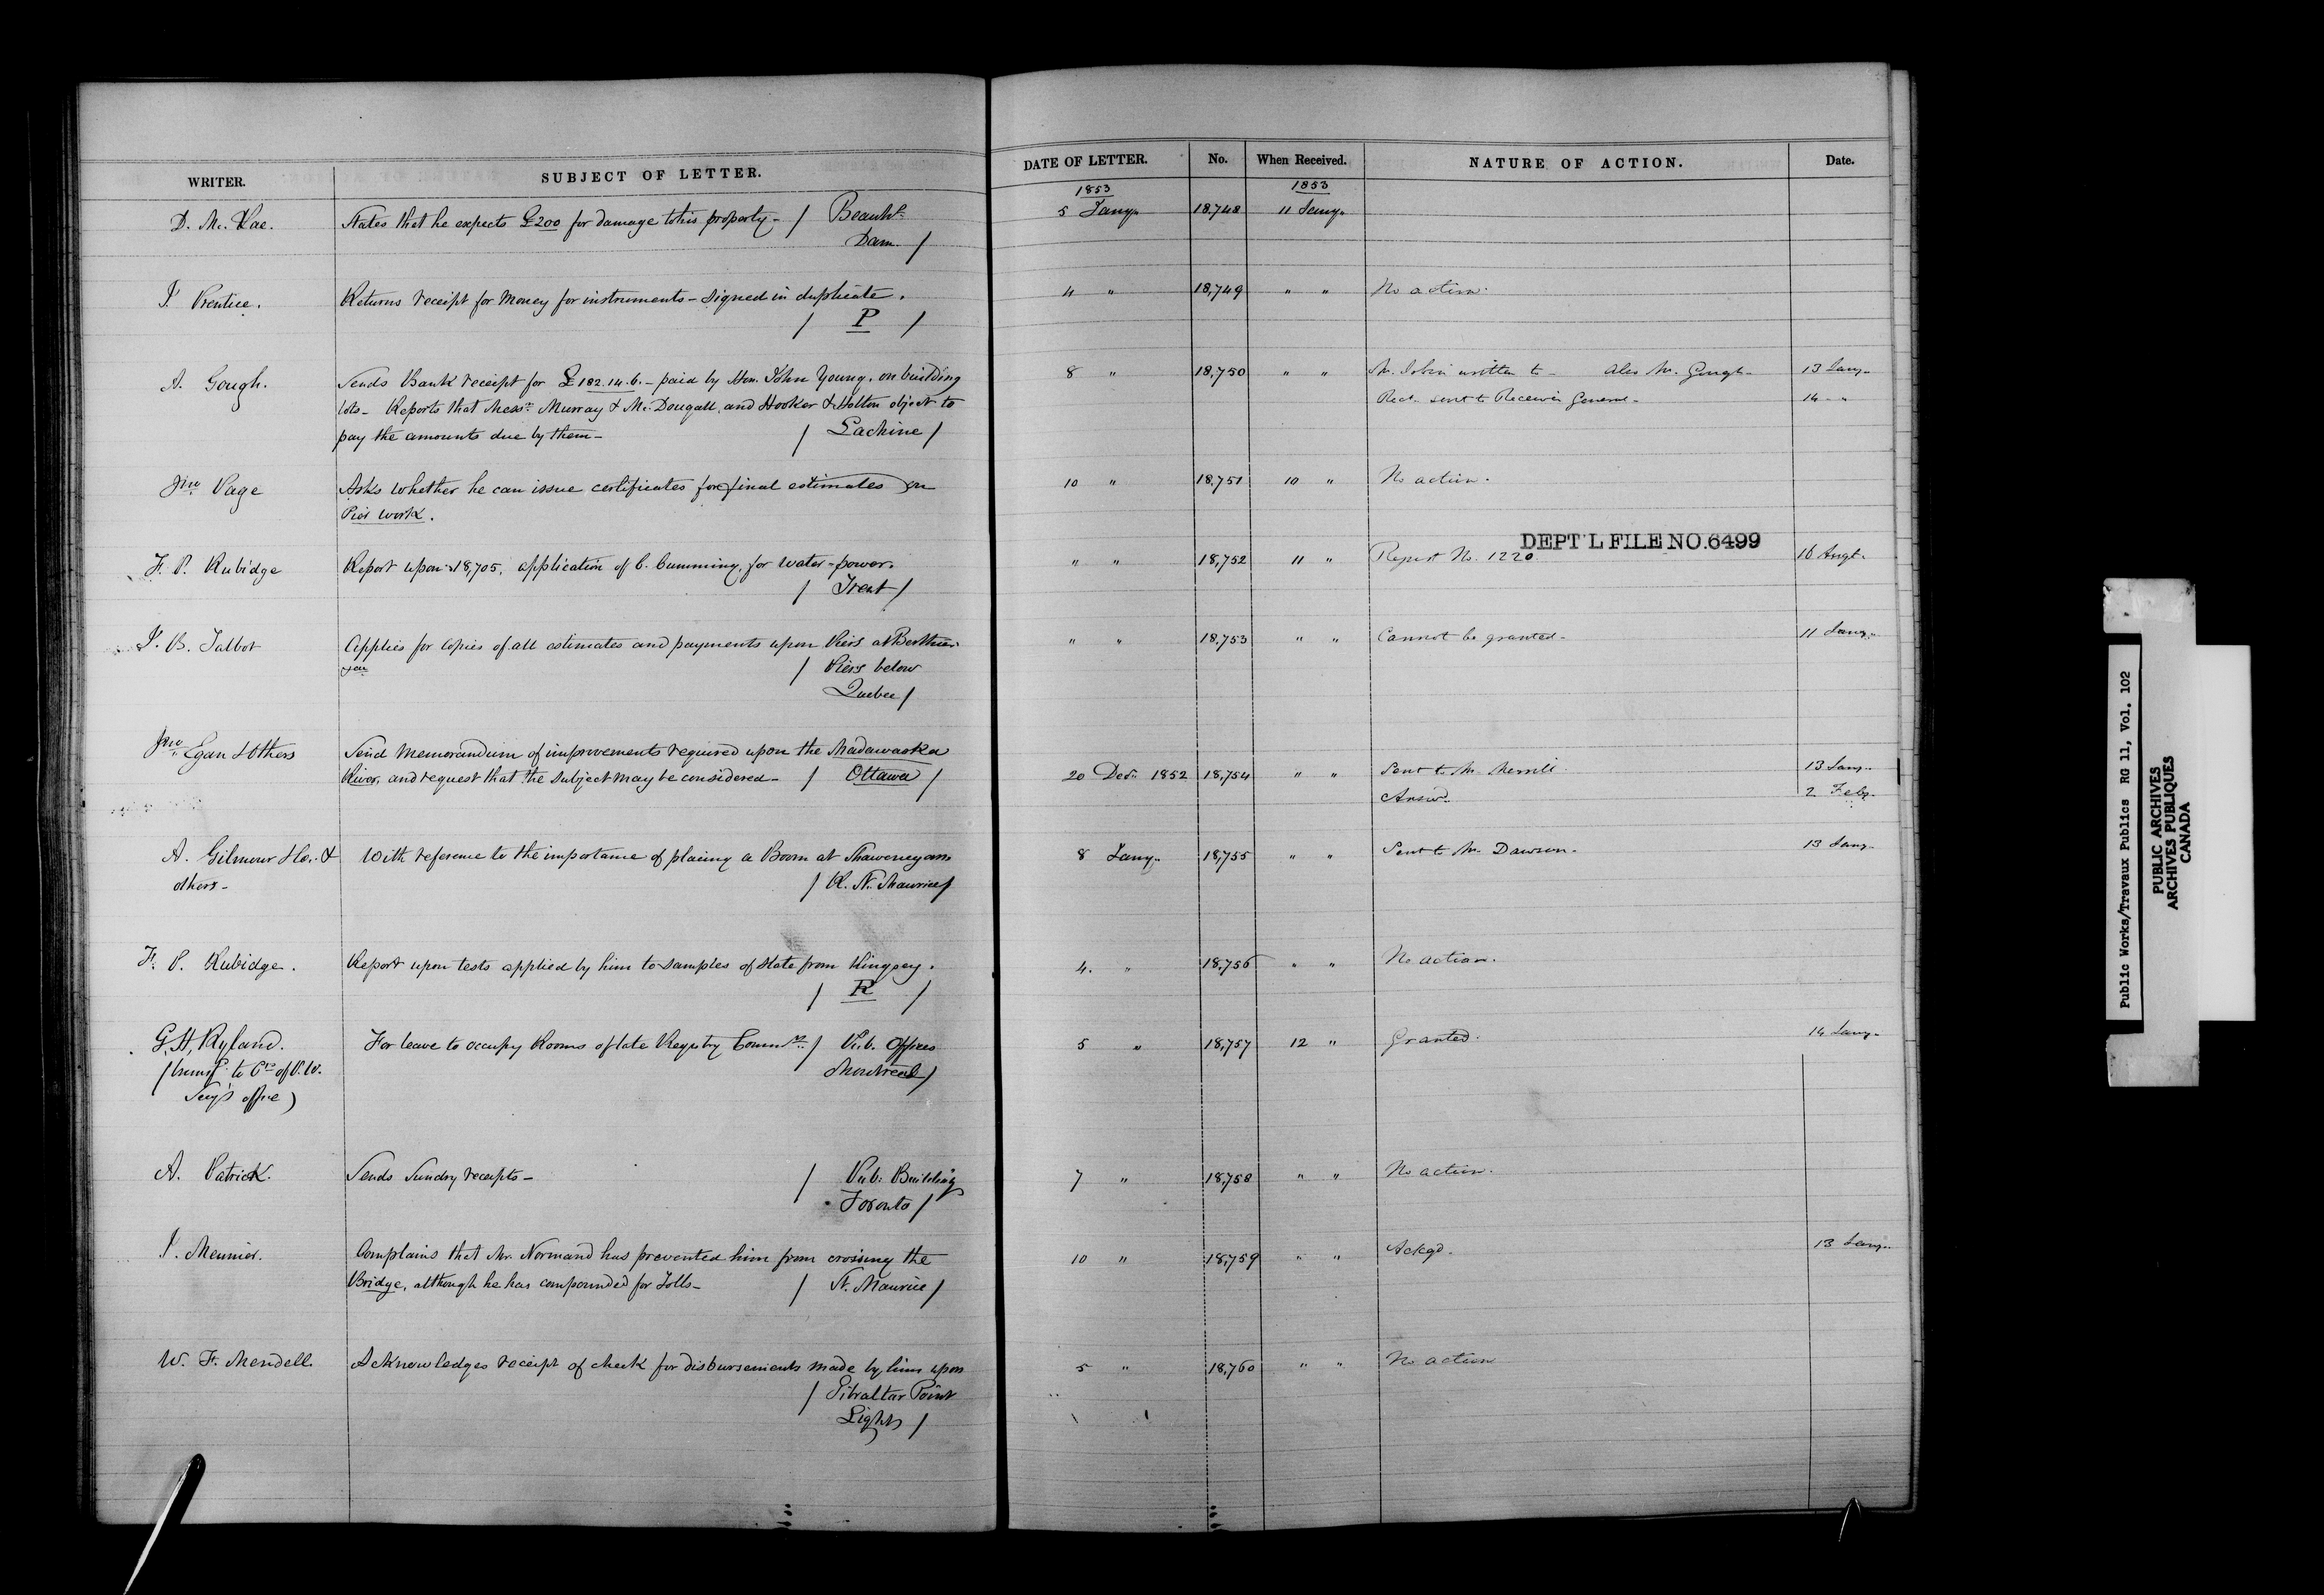 WRITER. SUBJECT OF LETTER. DATE OF LETTER. No. When Received. NATURE OF ACTION. Date.
1853 1853
D. Mc. Rae. States that he expects £200 for damage to his property - / Beauhs. 5 Jany. 18,748 11 Jany.
Dam. /
J. Prentice. Returns receipt for money for instruments - signed in duplicate. 4 " 18,749 " " No action.
/ P /
A. Gough. Sends Bank receipt for £182.14.6. - paid by Hon. John Young, on building 8 " 18,750 " " Mr. Tobin written to - Also Mr. Gough - 13 Jany.
lots - Reports that Messrs. Murray & Mc. Dougall, and Hooker & Holton object to Rect. sent to Receiver General - 14 "
pay the amounts due by them - / Lachine /
Jno. Page Asks whether he can issue certificates for final estimates on 10 " 18,751 10 " No action.
Pier work.
DEPT'L FILE NO. 6499
F. P. Rubidge Report upon 18,705, application of C. Cumming, for water-power. " " 18,752 11 " Report No. 1220. 16 Augt.
/ Trent /
J. B. Talbot Applies for copies of all estimates and payments upon Piers at Berthier " " 18,753 " " Cannot be granted - 11 Jany.
/ Piers below
Quebec /
Jno. Egan & Others Send Memorandum of improvements required upon the Madawaska
River, and request that the subject may be considered - / Ottawa / 20 Decr. 1852 18,754 " " Sent to Mr. Merrill. 13 Jany.
Answd. 2 Feby.
A. Gilmour & Co. & With reference to the importance of placing a Boom at Shawenegan 8 Jany. 18,755 " " Sent to Mr. Dawson. 13 Jany.
others - / R. St. Maurice /
F. P. Rubidge. Report upon tests applied by him to samples of slate from Kingsey. 4. " 18,756 " " No action.
/ R /
G. H. Ryland. For leave to occupy Rooms of late Registry Commrs. / Pub. Offices 5 " 18,757 12 " Granted. 14 Jany.
to of P.W. Montreal /
Secy's office)
A. Patrick. Sends Sundry receipts - / Pub: Building 7 " 18,758 " " No action.
Toronto /
J. Meunier. Complains that Mr. Normand has prevented him from crossing the 10 " 18,759 " " Ackgd. 13 Jany.
Bridge, although he has compounded for Tolls - / St. Maurice /
W. F. Mendell. Acknowledges receipt of check for disbursements made by him upon 5 " 18,760 " " No action
/ Gibraltar Point
Light /
Public Works/Travaux Publics RG 11, Vol. 102
PUBLIC ARCHIVES
ARCHIVES PUBLIQUES
CANADA